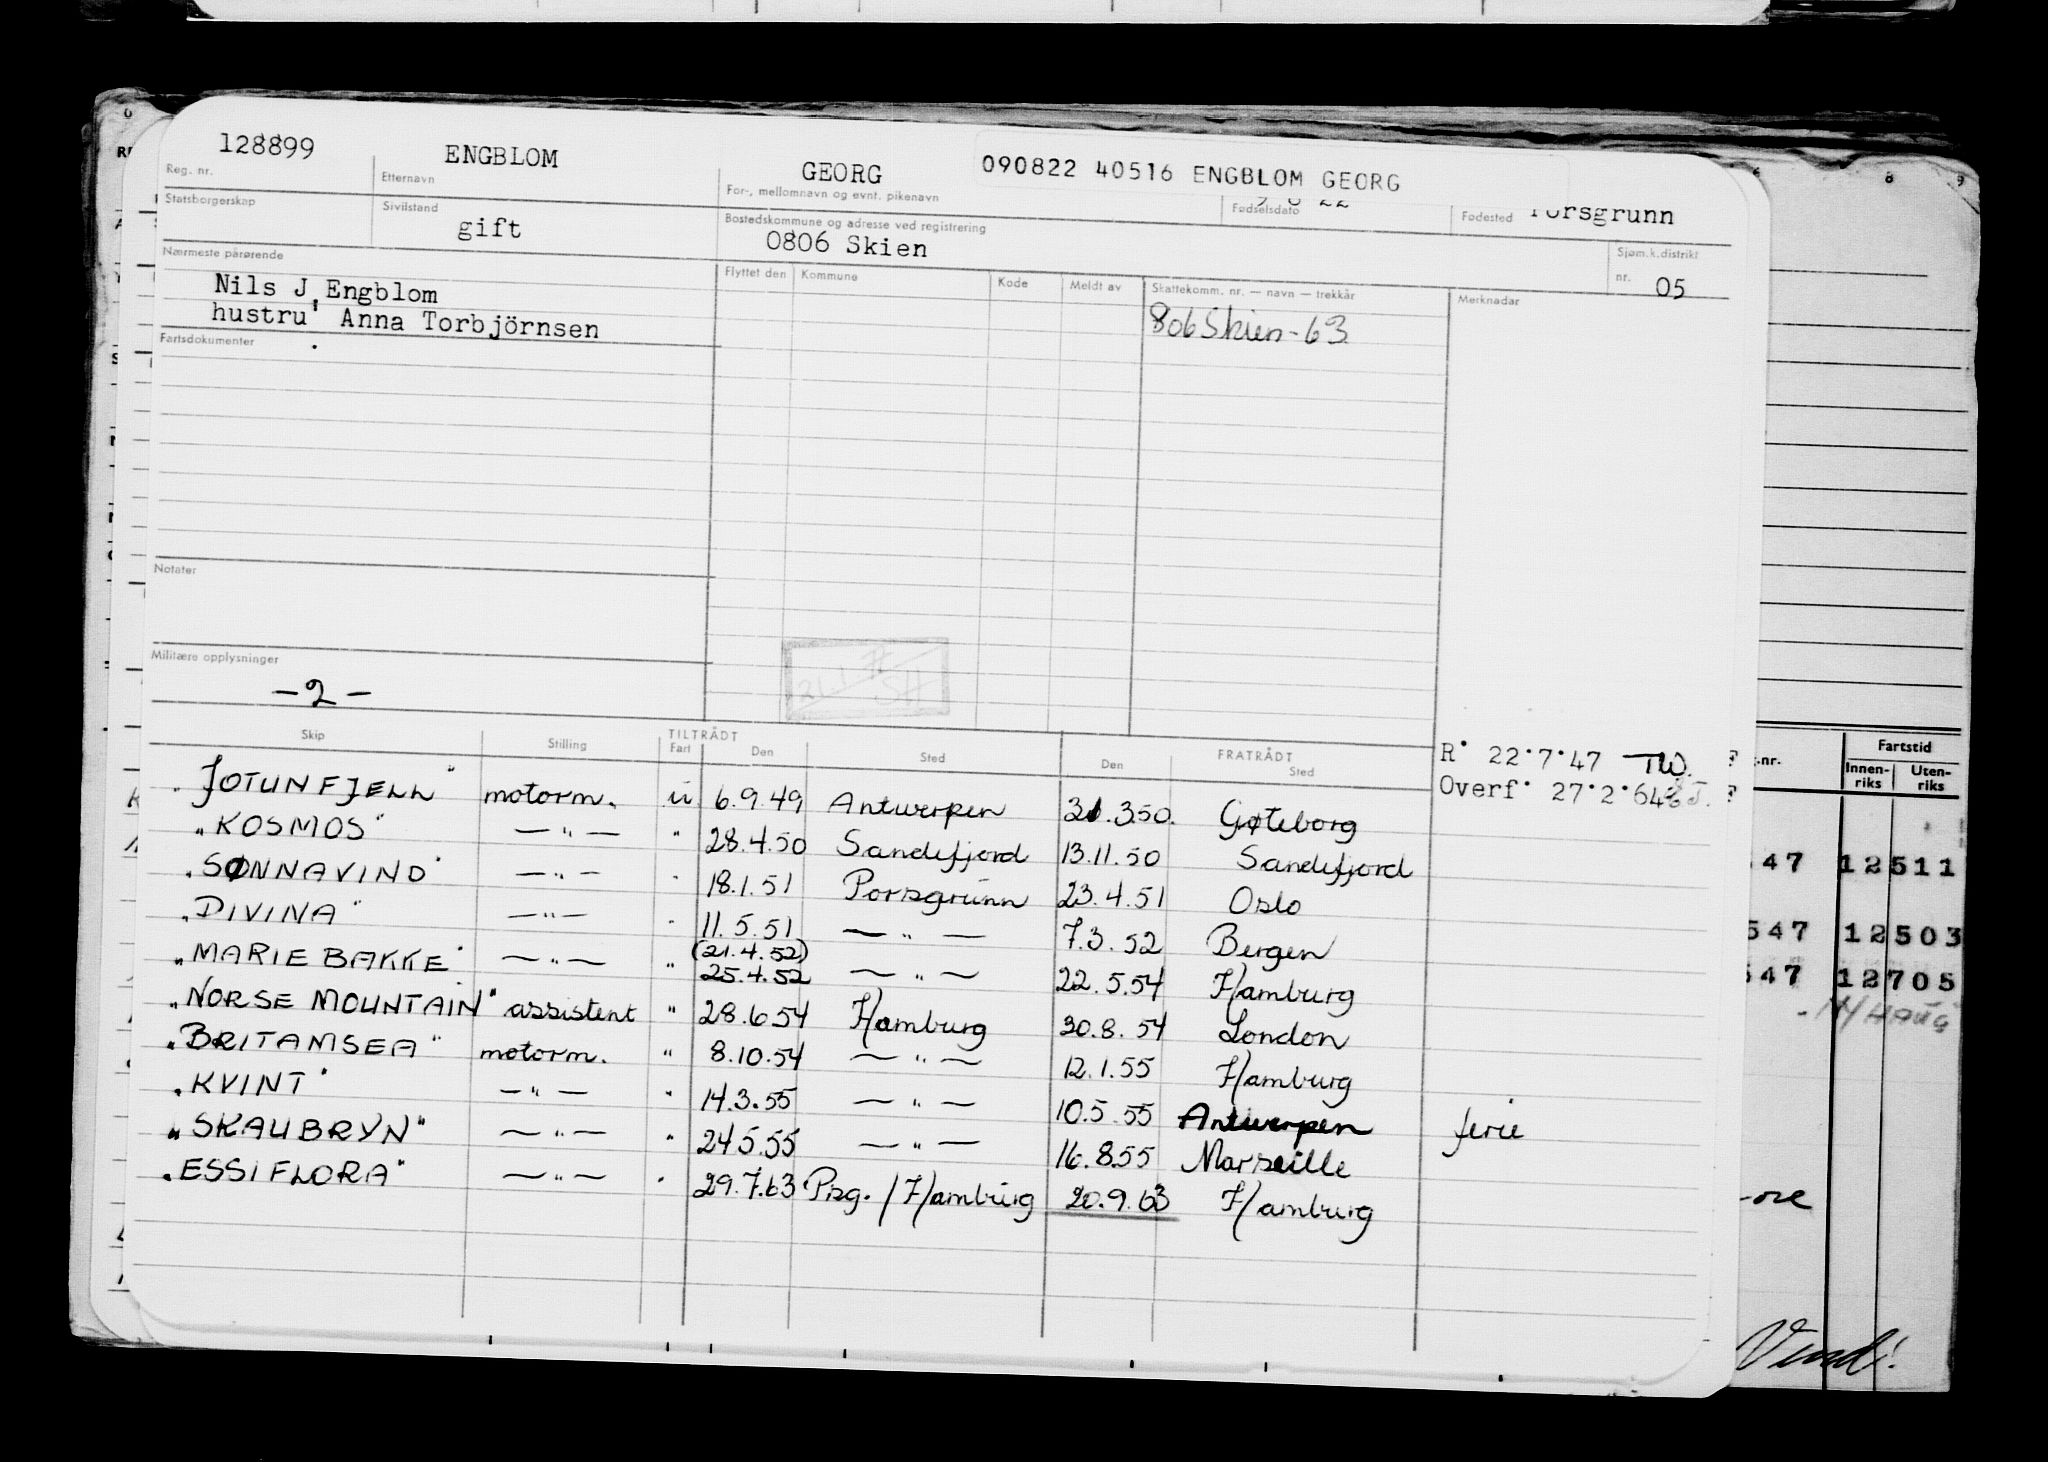 128899 ENGBLOM GEORG 090822 40516 ENGBLOM GEORG
Reg. nr. Etternavn For-, mellomnavn og evnt. pikenavn Fødselsdato Fødested
Statsborgerskap Sivilstand gift Bostedskommune og adresse ved registrering
0806 Skien
Sjøm.k.distrikt nr. 05
Nærmeste pårørende Flyttet den Kommune Kode Meldt av Skattekomm. nr. — navn — trekkår Merknader
Nils J Engblom
hustru Anna Torbjörnsen
806 Skien - 63
Fartsdokumenter
Notater
Militære opplysninger
- 2 -
Skip Stilling TILTRÅDT Fart Den Sted FRATRÅDT Den Sted
R. 22.7.47 TW.
Overf. 27.2.64
"JOTUNFJELL" motorm. u 6.9.49 Antwerpen 31.3.50. Gøteborg
"KOSMOS" —"— " 28.4.50 Sandefjord 13.11.50 Sandefjord
"SØNNAVIND" —"— " 18.1.51 Porsgrunn 23.4.51 Oslo
"DIVINA" —"— " 11.5.51 —"— 7.3.52 Bergen
"MARIE BAKKE" —"— " (21.4.52) 25.4.52 —"— 22.5.54 Hamburg
"NORSE MOUNTAIN" assistent " 28.6.54 Hamburg 30.8.54 London
"BRITAMSEA" motorm. " 8.10.54 —"— 12.1.55 Hamburg
"KVINT" —"— " 14.3.55 —"— 10.5.55 Antwerpen ferie
"SKAUBRYN" —"— " 24.5.55 —"— 16.8.55 Marseille
"ESSI FLORA" —"— " 29.7.63 Prsg. / Hamburg 20.9.63 Hamburg
8 9
Fartstid
Innen-riks Uten-riks
47 12511
547 12503
547 12705
Vend!